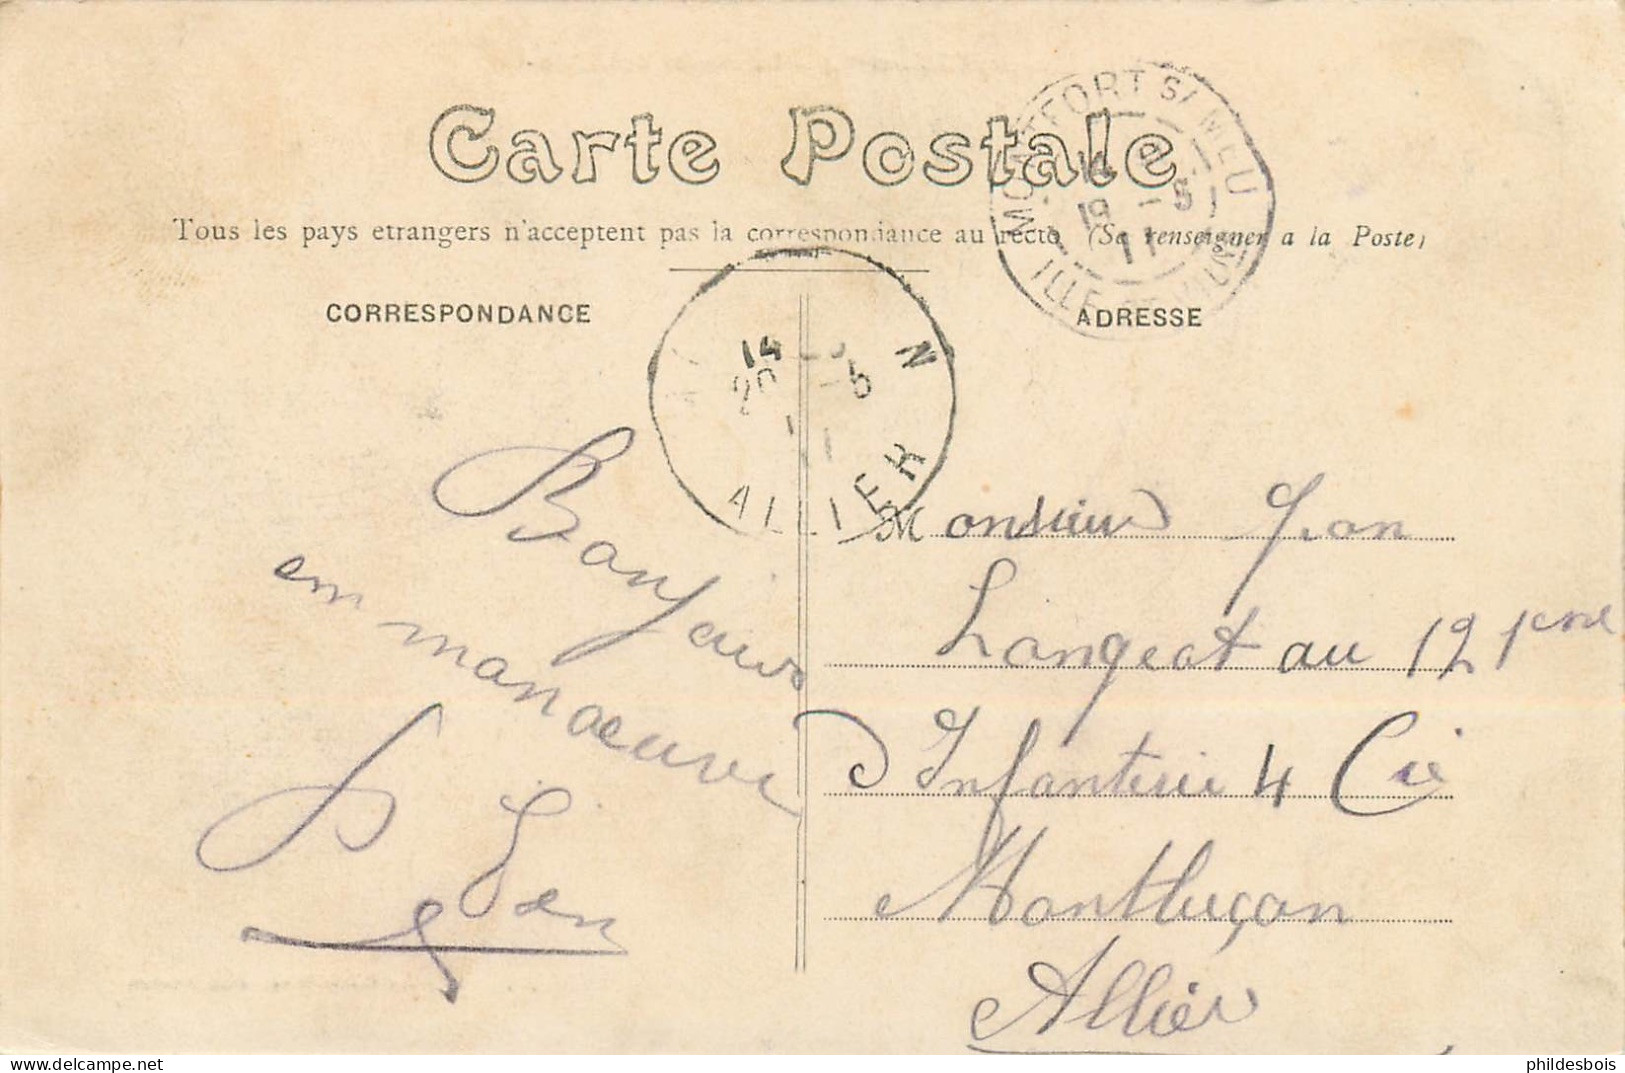 Carte Postale
Tous les pays etrangers n'acceptent pas la correspondance au recto (Se renseigner a la Poste)
CORRESPONDANCE
ADRESSE
MONTFORT S/ MEU
19 -5
11
ILLE ET VILAINE
14
20 -5
11
ALLIER
Bonjour
en manoeuvre
Monsieur Jean
Langeat au 121eme
d'Infanterie 4 Cie
Montluçon
Allier
delcampe.net
phildesbois